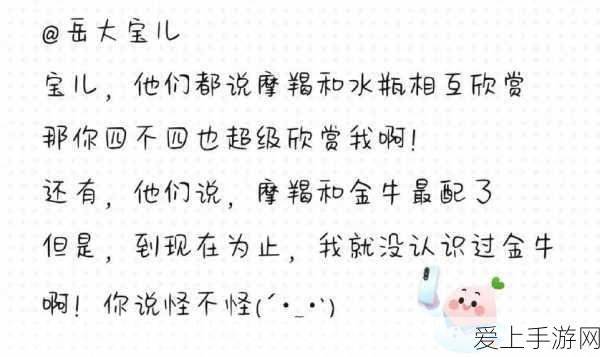 @岳大宝儿
宝儿，他们都说摩羯和水瓶相互欣赏
那你四不四也超级欣赏我啊！
还有，他们说，摩羯和金牛最配了
但是，到现在为止，我就没认识过金牛
啊！你说怪不怪(´•_•`)
爱上手游网